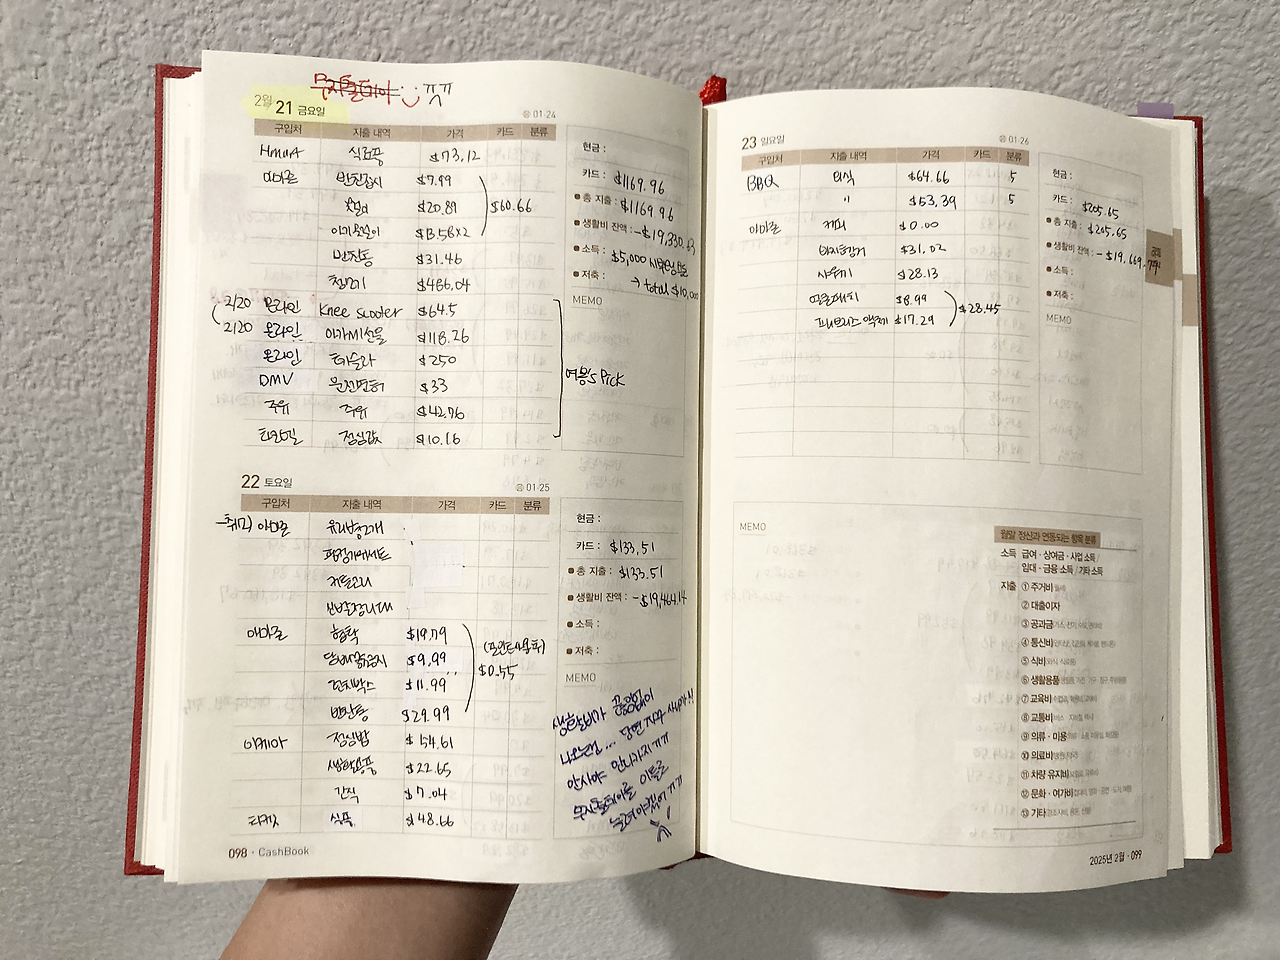 무지출데이 ㅠㅠ
2월 21 금요일
음 01·24
구입처 지출 내역 가격 카드 분류
HmaA 식료품 $73.12
아마존 반찬접시 $7.99
$20.89 $60.66
$13.58×2
반찬통 $31.46
청소기 $486.04
2/20 온라인 Knee scooter $64.5
2/20 온라인 이가씨선물 $118.26
온라인 테슬라 $250
DMV 운전면허 $33
주유 주유 $42.76
점심값 $10.16
여봉's Pick
현금 :
카드 : $1169.96
총 지출 : $1169.96
생활비 잔액 : -$19,330.63
소득 : $5,000
→ total $10,000
저축 :
MEMO
22 토요일
음 01·25
구입처 지출 내역 가격 카드 분류
아마존 유리병2개
커튼고리
아마존 협탁 $19.79
$9.99
$11.99
반찬통 $29.99
(포인트사용후)
$0.55
이케아 점심밥 $54.61
생활용품 $22.65
간식 $7.04
타겟 식품 $48.66
현금 :
카드 : $133.51
총 지출 : $133.51
생활비 잔액 : -$19,464.14
소득 :
저축 :
MEMO
생활비가 끝없이
나오는넹... 당면 자꾸 사네!!
안사야 안나가지ㅠㅠ
무지출데이를 이틀로
늘려야겠어ㅠㅠ
098 · CashBook
23 일요일
음 01·26
구입처 지출 내역 가격 카드 분류
BBQ 외식 $64.66 5
〃 $53.39 5
아마존 커피 $0.00
$31.02
샤워기 $28.13
$8.99
페브리즈 액체 $17.29
$28.45
현금 :
카드 : $205.65
총 지출 : $205.65
생활비 잔액 : -$19,669.79
소득 :
저축 :
MEMO
MEMO
월말 정산과 연동되는 항목 분류
소득 급여 · 상여금 · 사업 소득 /
임대 · 금융 소득 / 기타 소득
지출 ① 주거비
② 대출이자
③ 공과금
④ 통신비
⑤ 식비
⑥ 생활용품
⑦ 교육비
⑧ 교통비
⑨ 의류 · 미용
⑩ 의료비
⑪ 차량 유지비
⑫ 문화 · 여가비
⑬ 기타
2025년 2월 · 099